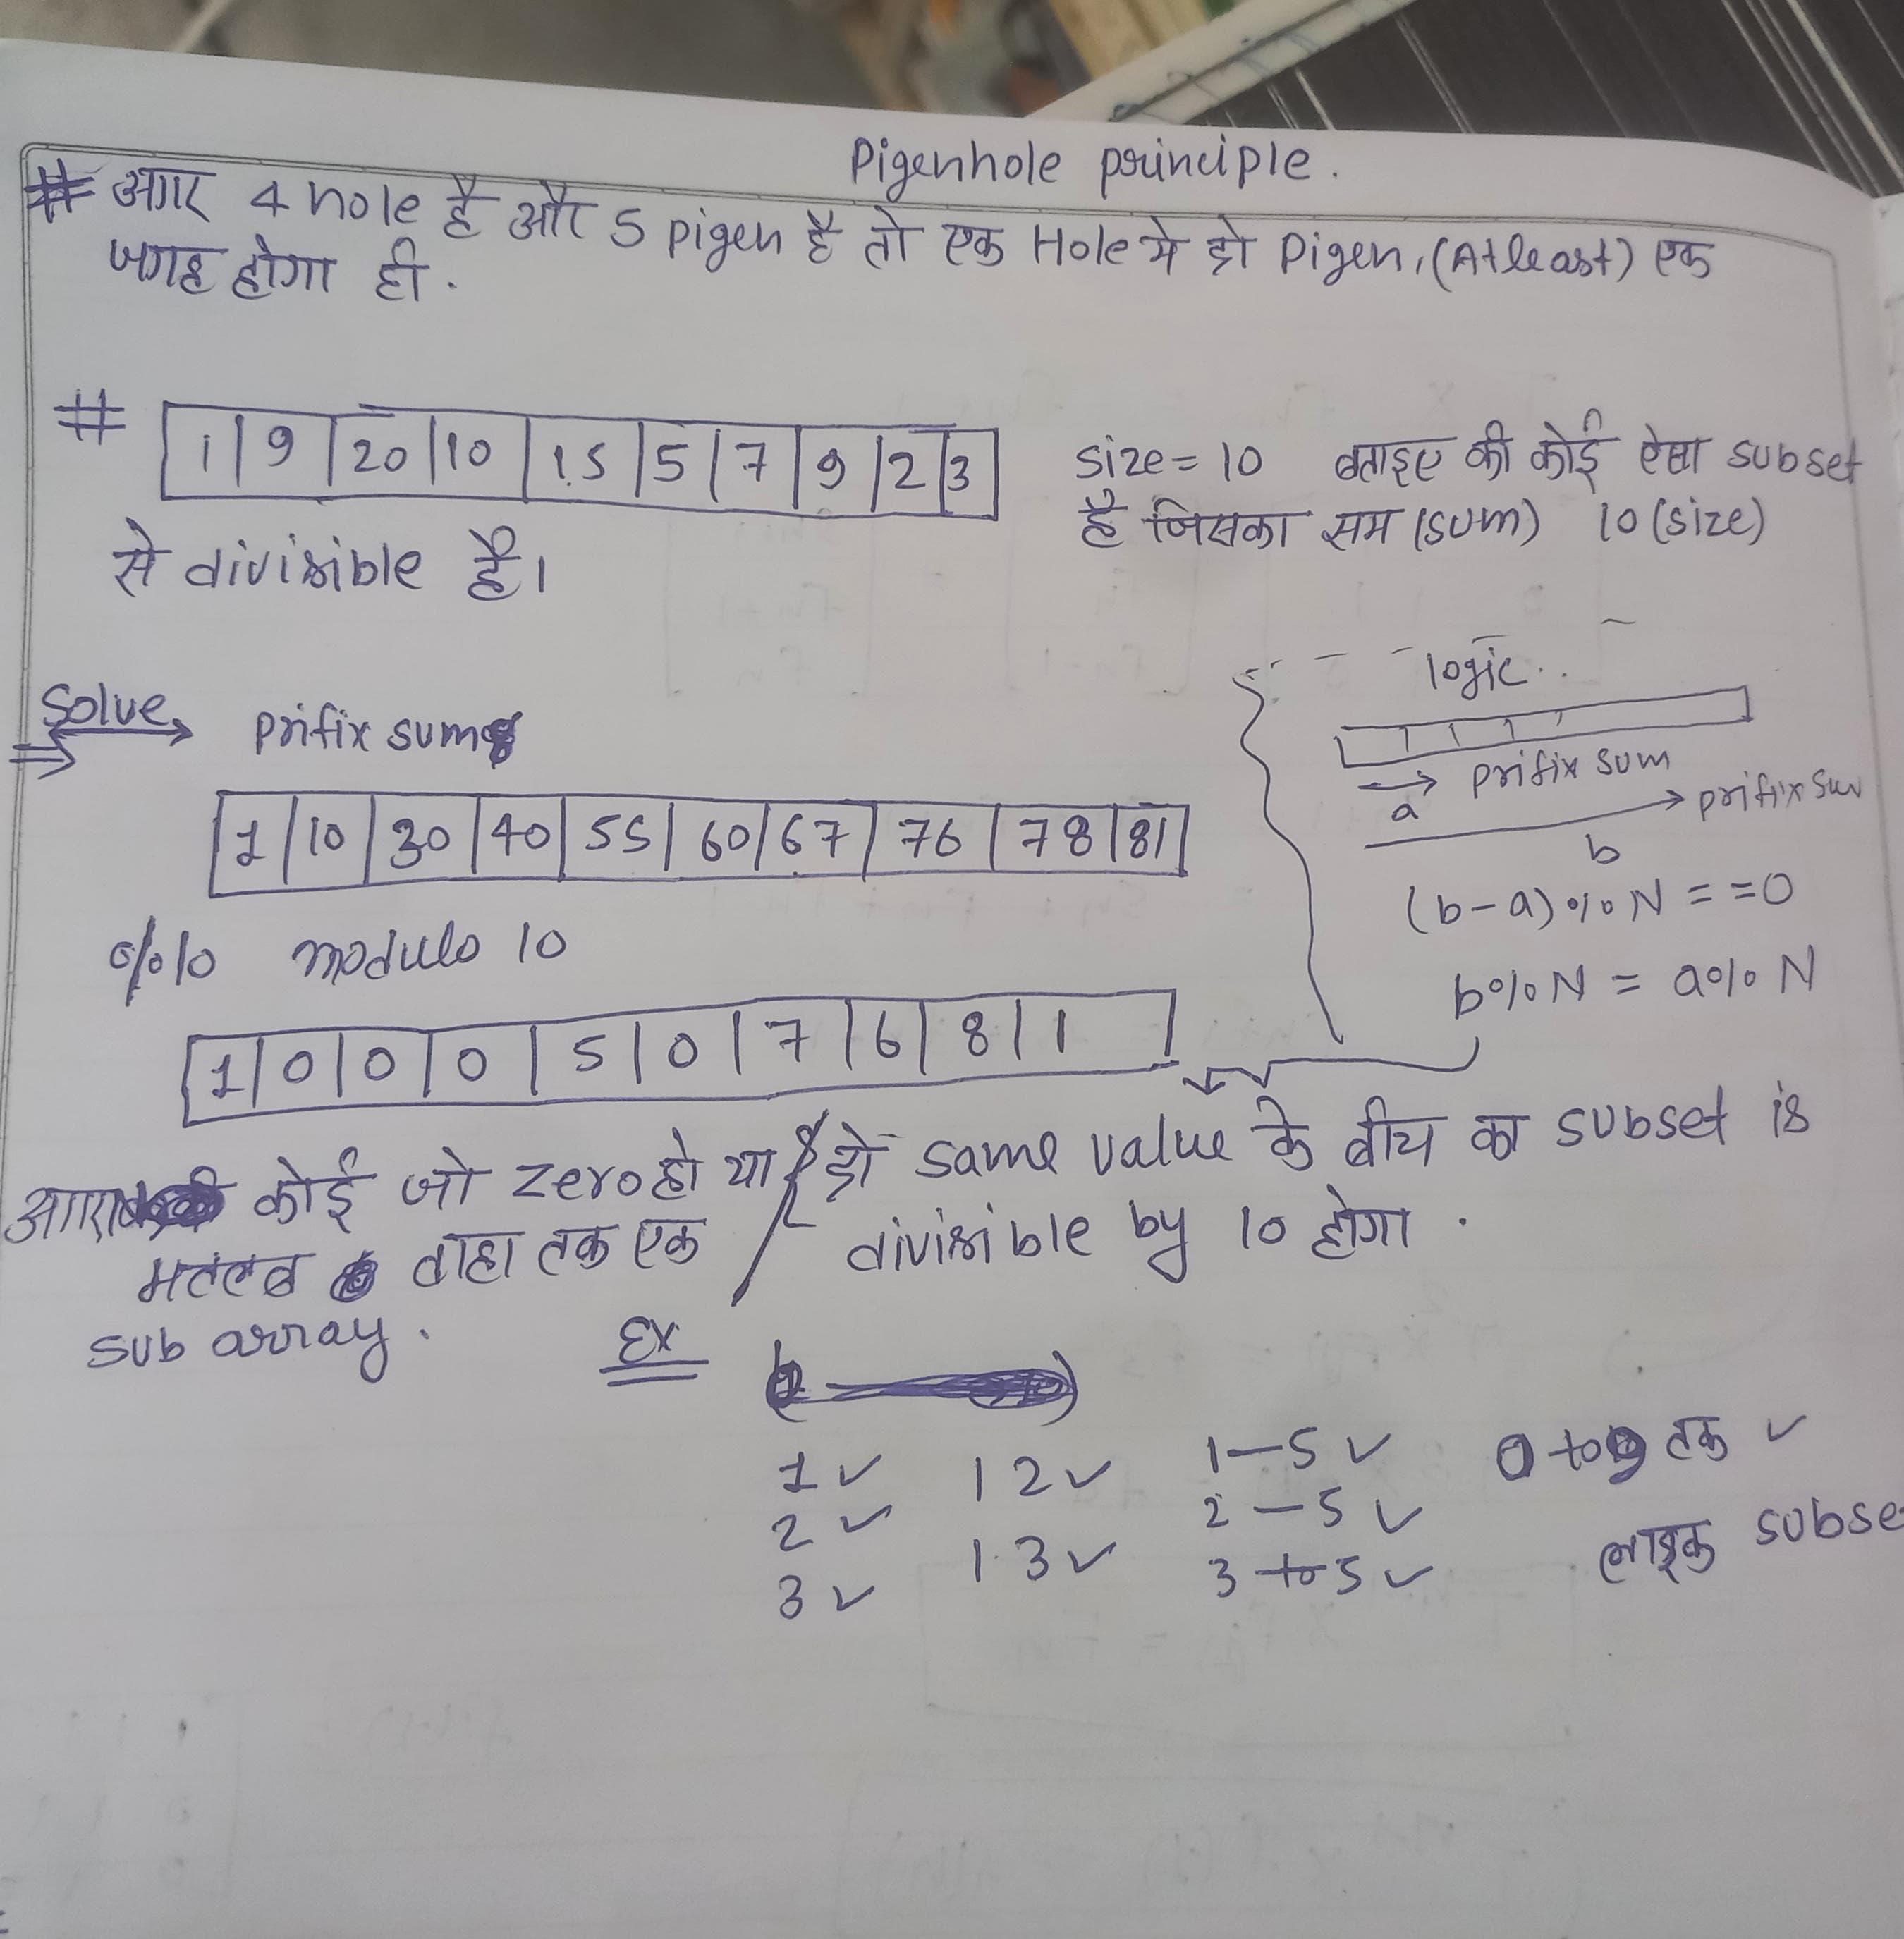 Pigenhole principle.
# अगर 4 hole है और 5 pigen है तो एक Hole मे दो Pigen, (Atleast) एक
जगह होगा ही.
# 1 | 9 | 20 | 10 | 15 | 5 | 7 | 9 | 2 | 3
size = 10 बताइए की कोई ऐसा subset
है जिसका सम (sum) 10 (size)
से divisible है।
Solve
prifix sum
1 | 10 | 30 | 40 | 55 | 60 | 67 | 76 | 78 | 81
%10 modulo 10
1 | 0 | 0 | 0 | 5 | 0 | 7 | 6 | 8 | 1
logic..
a prifix sum
b prifix su
(b-a)%N = =0
b%N = a%N
कोई जो zero हो या
मतलब वाहा तक एक
sub array.
दो same value के बीच का subset is
divisible by 10 होगा.
Ex
1 ✓ 12 ✓ 1-5 ✓ 0 to 9 तक ✓
2 ✓ 1.3 ✓ 2-5 ✓ subse
3 ✓ 3 to 5 ✓